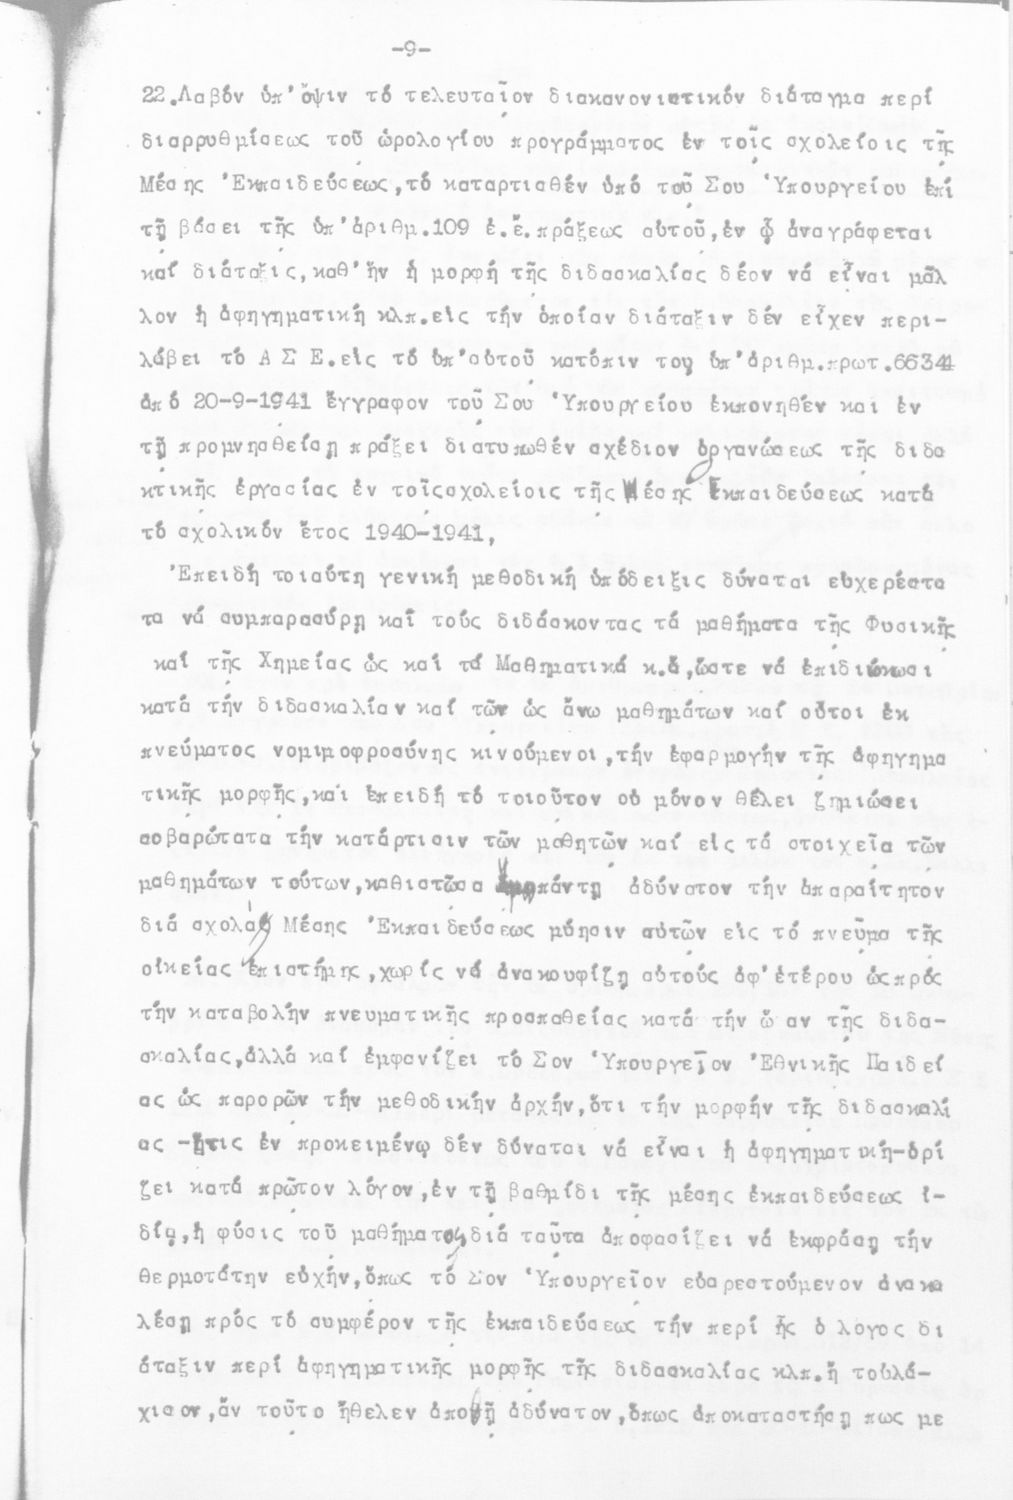 -9-
22.Λαβόν ὑπ'ὄψιν τό τελευταῖον διακανονιστικόν διάταγμα περί
διαρρυθμίσεως τοῦ ὡρολογίου προγράμματος ἐν τοῖς σχολείοις τῆς
Μέσης Ἐκπαιδεύσεως,τό καταρτισθέν ὑπό τοῦ Σου Ὑπουργείου ἐπί
τῇ βάσει τῆς ὑπ'ἀριθμ.109 ἐ.ἔ.πράξεως αὐτοῦ,ἐν ᾧ ἀναγράφεται
καί διάταξις,καθ'ἥν ἡ μορφή τῆς διδασκαλίας δέον νά εἶναι μᾶλ
λον ἡ ἀφηγηματική κλπ.εἰς τήν ὁποίαν διάταξιν δέν εἶχεν περι-
λάβει τό Α Σ Ε.εἰς τό ὑπ'αὐτοῦ κατόπιν του ὑπ'ἀριθμ.πρωτ.66344
ἀπό 20-9-1941 ἔγγραφον τοῦ Σου Ὑπουργείου ἐκπονηθέν και ἐν
τῇ προμνησθείσῃ πράξει διατυπωθέν σχέδιον ὀργανώσεως τῆς διδα
κτικῆς ἐργασίας ἐν τοῖςσχολείοις τῆς Μέσης Ἐκπαιδεύσεως κατά
τό σχολικόν ἔτος 1940-1941,
Ἐπειδή τοιαύτη γενική μεθοδική ὑπόδειξις δύναται εὐχερέστα
τα νά συμπαρασύρῃ καί τούς διδάσκοντας τά μαθήματα τῆς Φυσικῆς
καί τῆς Χημείας ὡς καί τά Μαθηματικά κ.ἄ,ὥστε νά ἐπιδιώκωσι
κατά τήν διδασκαλίαν καί τῶν ὡς ἄνω μαθημάτων καί οὗτοι ἐκ
πνεύματος νομιμοφροσύνης κινούμενοι,τήν ἐφαρμογήν τῆς ἀφηγημα
τικῆς μορφῆς,καί ἐπειδή τό τοιοῦτον οὐ μόνον θέλει ζημιώσει
σοβαρώτατα τήν κατάρτισιν τῶν μαθητῶν καί εἰς τά στοιχεῖα τῶν
μαθημάτων τούτων,καθιστῶσα πάντῃ ἀδύνατον τήν ἀπαραίτητον
διά σχολάς Μέσης Ἐκπαιδεύσεως μύησιν αὐτῶν εἰς τό πνεῦμα τῆς
οἰκείας ἐπιστήμης,χωρίς νά ἀνακουφίζῃ αὐτούς ἀφ'ἑτέρου ὡςπρός
τήν καταβολήν πνευματικῆς προσπαθείας κατά τήν ὥραν τῆς διδα-
σκαλίας,ἀλλά καί ἐμφανίζει τό Σον Ὑπουργεῖον Ἐθνικῆς Παιδεί
ας ὡς παρορῶν τήν μεθοδικήν ἀρχήν,ὅτι τήν μορφήν τῆς διδασκαλί
ας -ἥτις ἐν προκειμένῳ δέν δύναται νά εἶναι ἡ ἀφηγηματική-ὁρί
ζει κατά πρῶτον λόγον,ἐν τῇ βαθμίδι τῆς μέσης ἐκπαιδεύσεως ἰ-
δίᾳ,ἡ φύσις τοῦ μαθήματος,διά ταῦτα ἀποφασίζει νά ἐκφράσῃ τήν
θερμοτάτην εὐχήν,ὅπως τό Σον Ὑπουργεῖον εὐαρεστούμενον ἀνακα
λέσῃ πρός τό συμφέρον τῆς ἐκπαιδεύσεως τήν περί ἧς ὁ λόγος δι
άταξιν περί ἀφηγηματικῆς μορφῆς τῆς διδασκαλίας κλπ.ἤ τοὐλά-
χισον,ἄν τοῦτο ἤθελεν ἀποβῇ ἀδύνατον,ὅπως ἀποκαταστήσῃ πως με